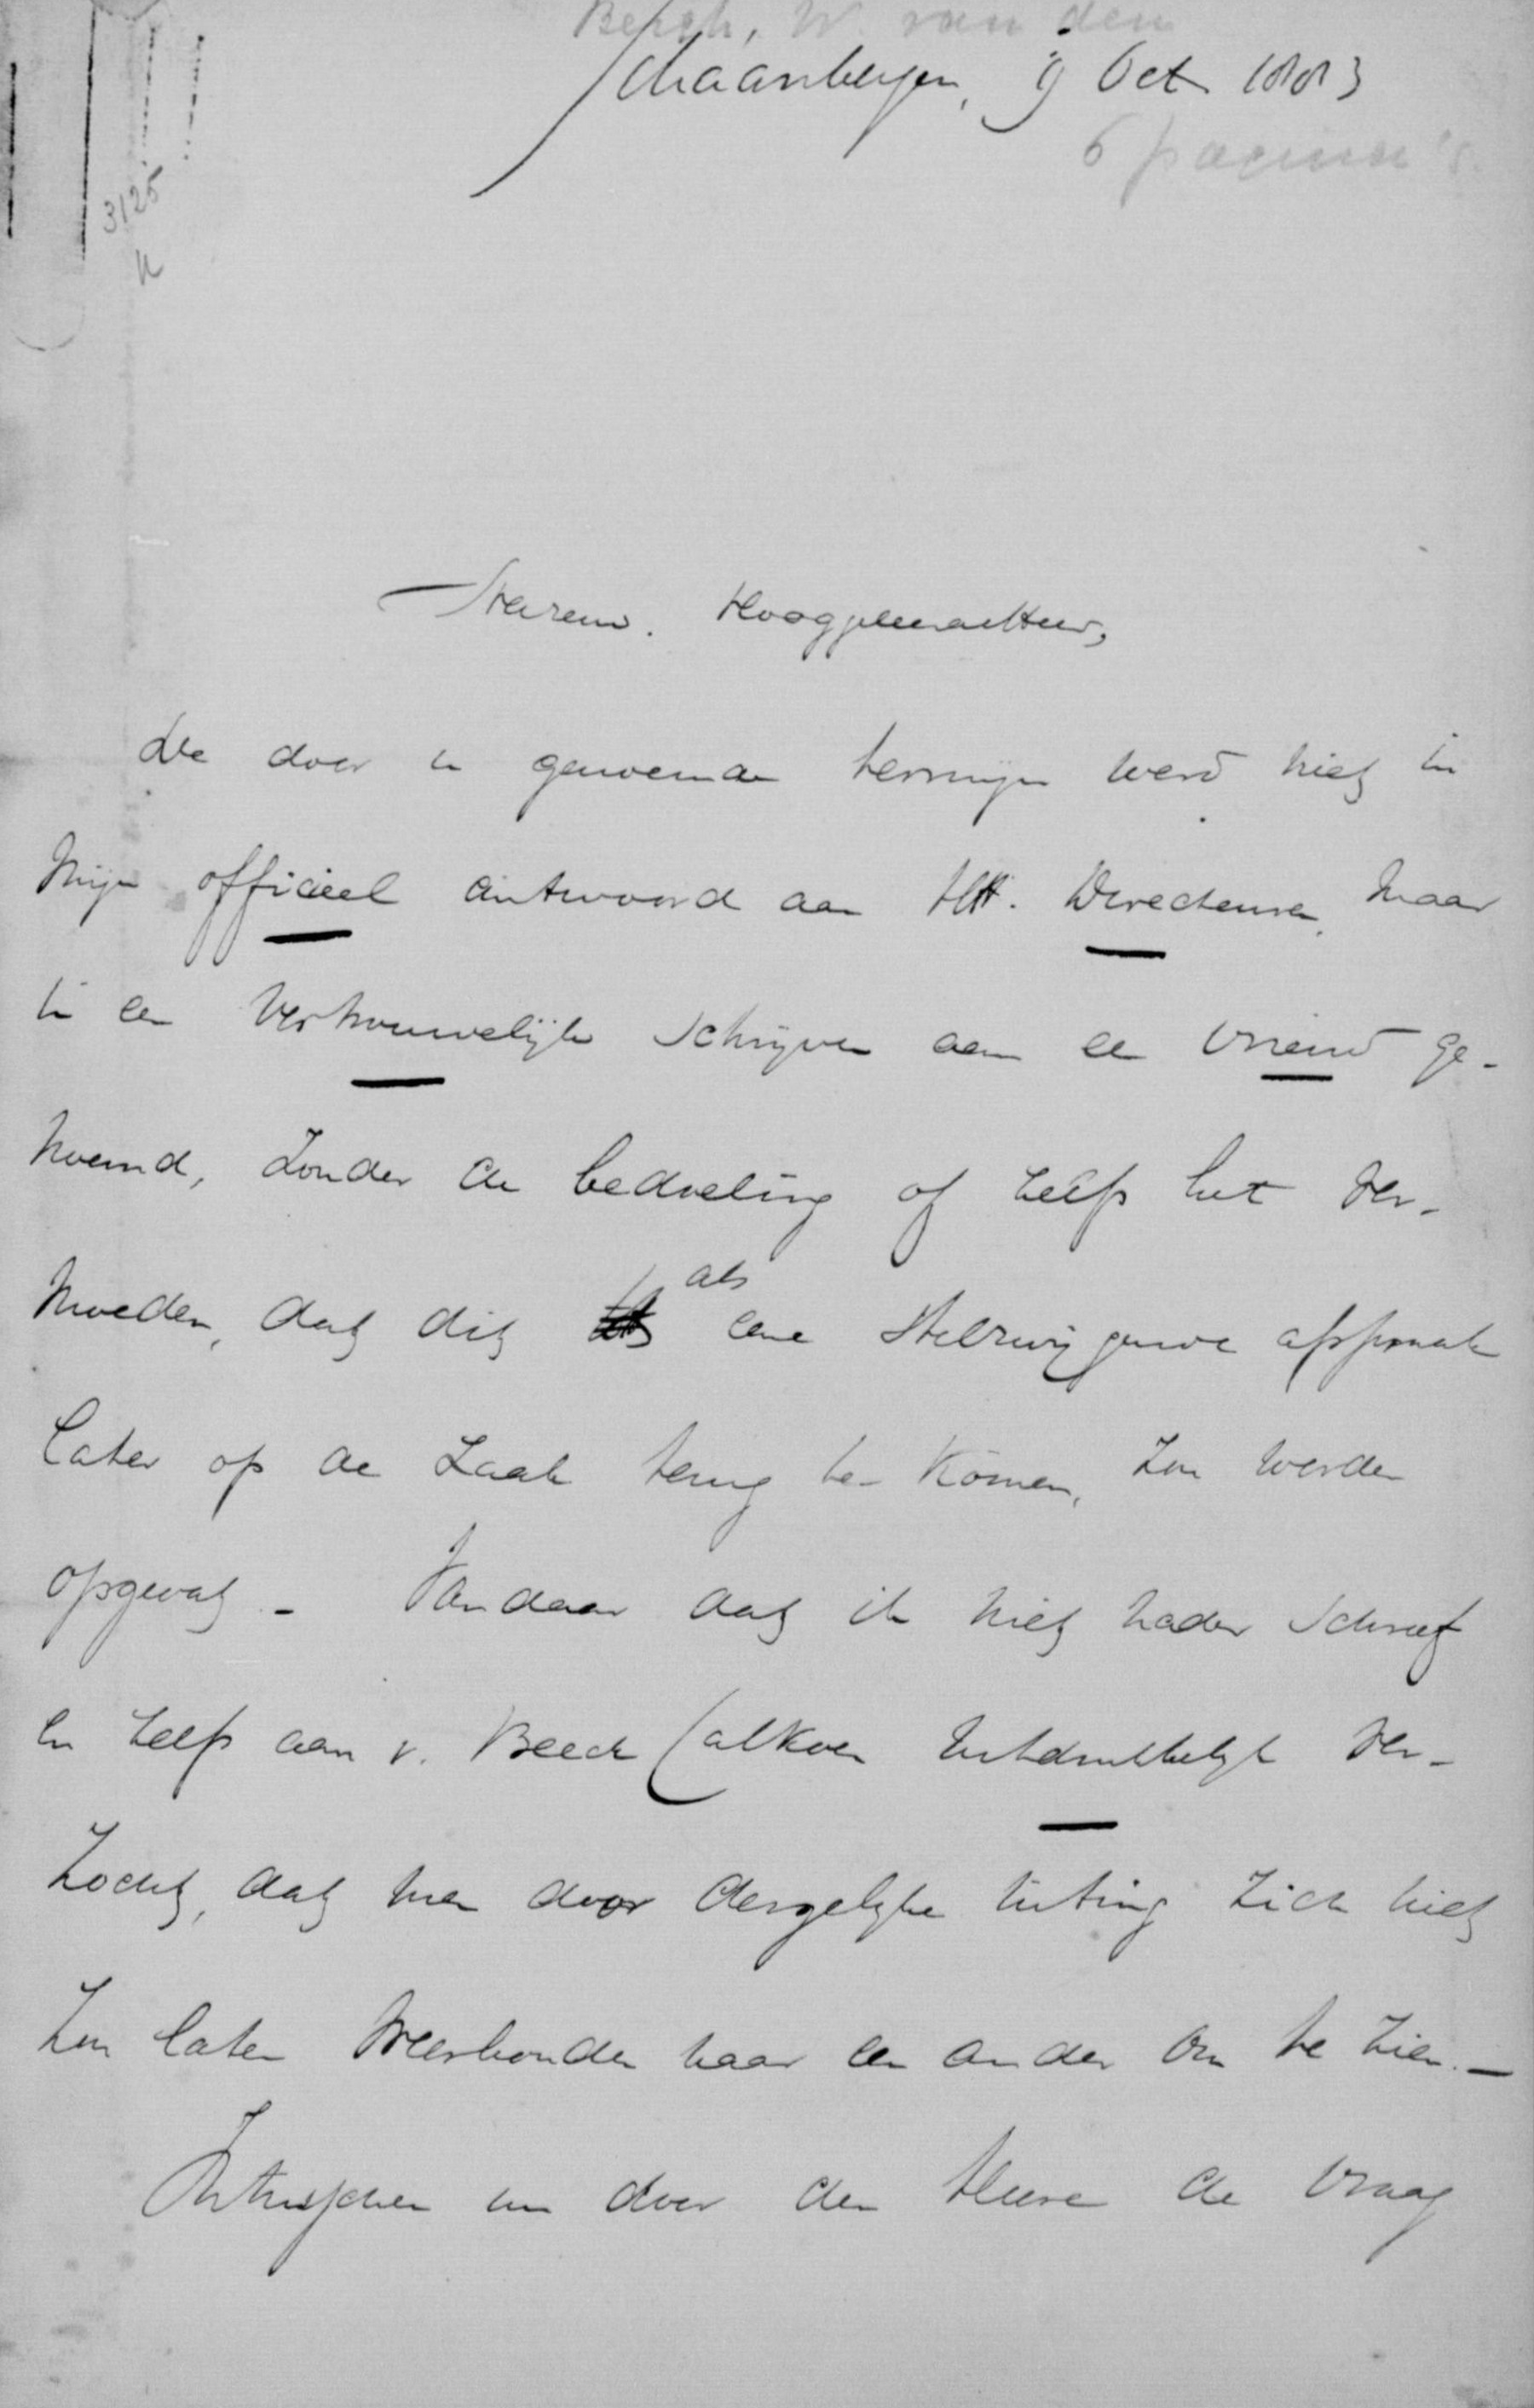 Bergh, W. van den
Schaarsbergen, 9 Oct 1883
6 pagina's.
3125
Weleerw. Hooggeleerde Heer,
De door u genoemde termijn werd niet in
mijn officieel antwoord aan HH. Directeuren, maar
in een vertrouwelijk schrijven aan een vriend ge-
noemd, zonder de bedoeling of zelfs het ver-
moeden, dat dit als eene stilzwijgende afspraak
later op de zaak terug te komen, zou worden
opgevat. - Vandaar dat ik niet nader schreef
en zelfs aan v. Beeck Calkoen uitdrukkelijk ver-
zocht, dat men door dergelijke uiting zich niet
zou laten weerhouden naar een ander om te zien. -
Ontusschen nu door den Heere de vraag